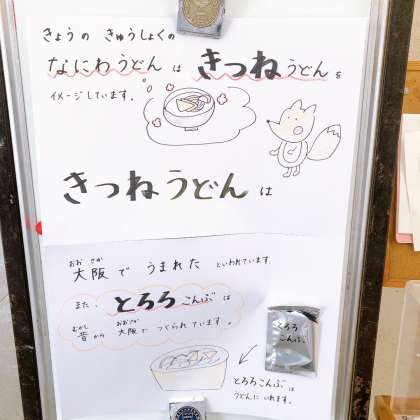 きょうの きゅうしょくの
なにわうどん は きつねうどん を
イメージしています。
きつねうどん は
おお さか
大阪で うまれた といわれています
また、とろろこんぶ は
むかし おおさか
昔から 大阪で つくられています。
とろろ
こんぶ
とろろこんぶは
うどんにいれます。